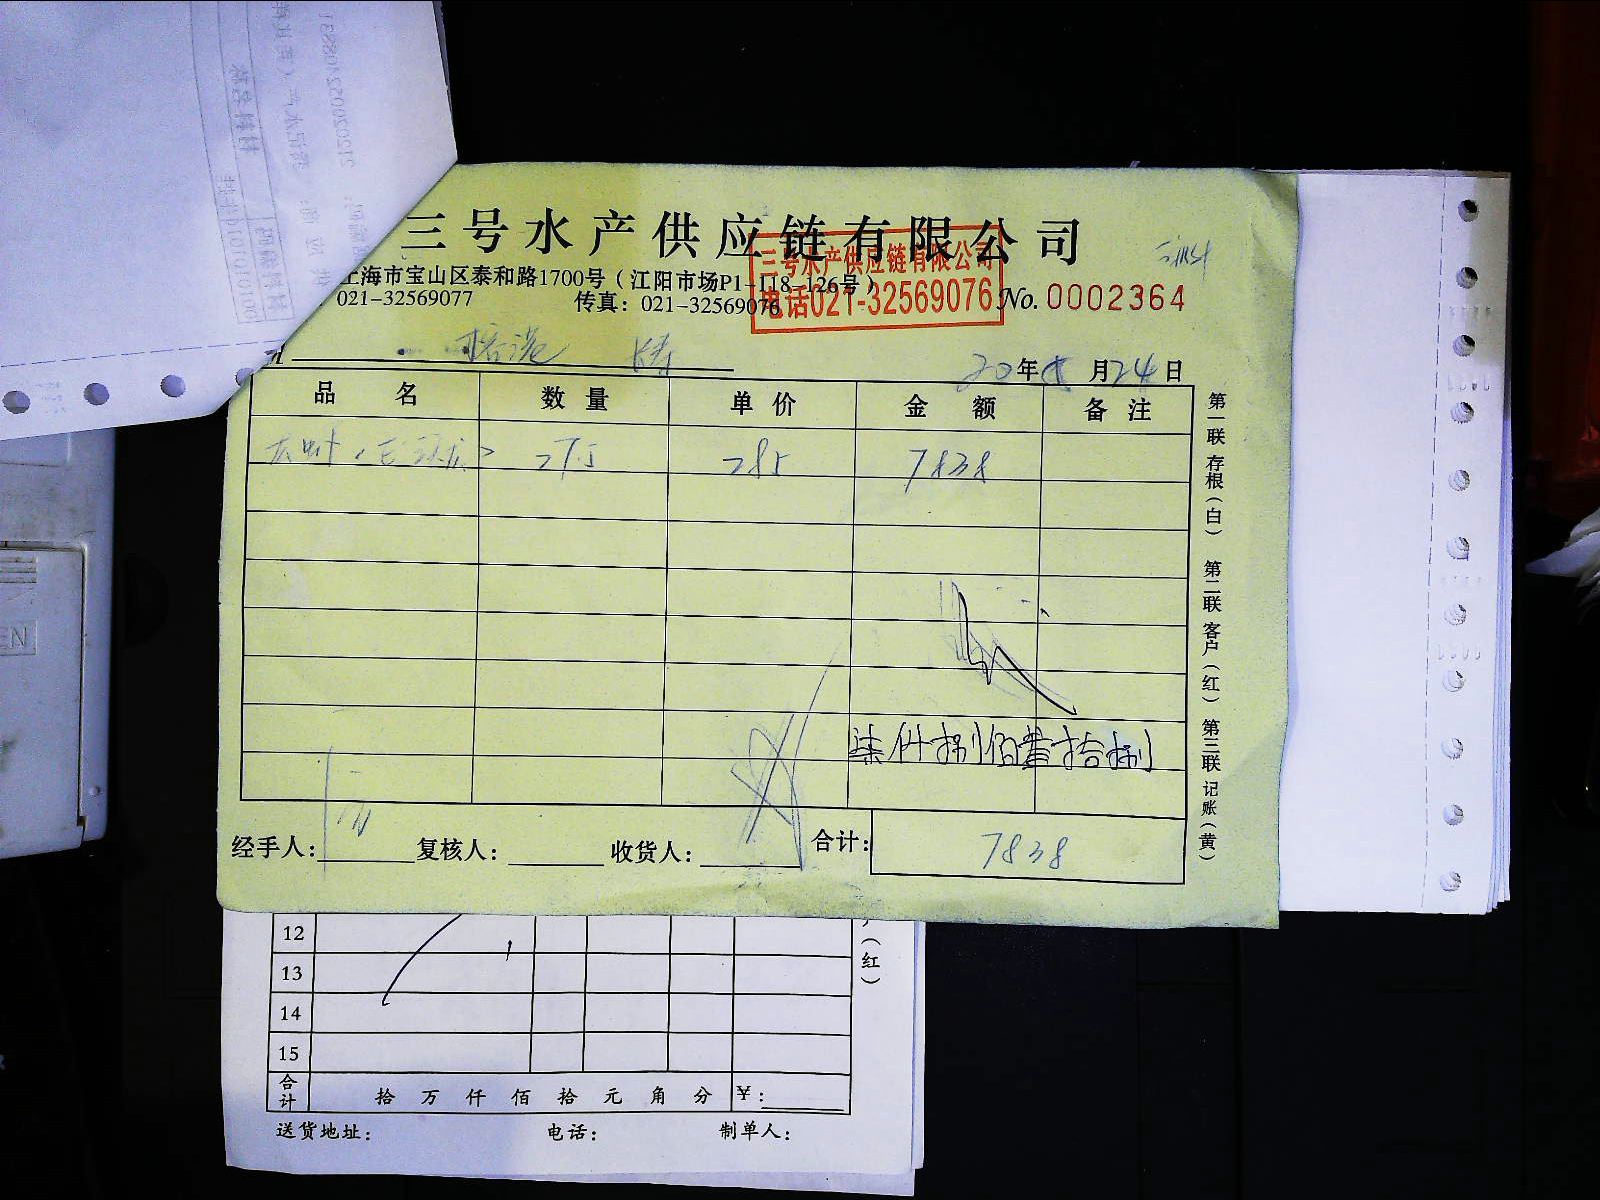 三号水产供应链有限公司
上海市宝山区泰和路1700号（江阳市场P1-118-126号）
021-32569077 传真：021-32569076
三号水产供应链有限公司
电话021-32569076
No. 0002364
20年 月24日
品名 数量 单价 金额 备注
275 285 7838
柒仟捌佰叁拾捌
经手人： 复核人： 收货人： 合计： 7838
第一联 存根（白） 第二联 客户（红） 第三联 记账（黄）
12
13
14
15
合计 拾 万 仟 佰 拾 元 角 分 ¥：
（红）
送货地址： 电话： 制单人：